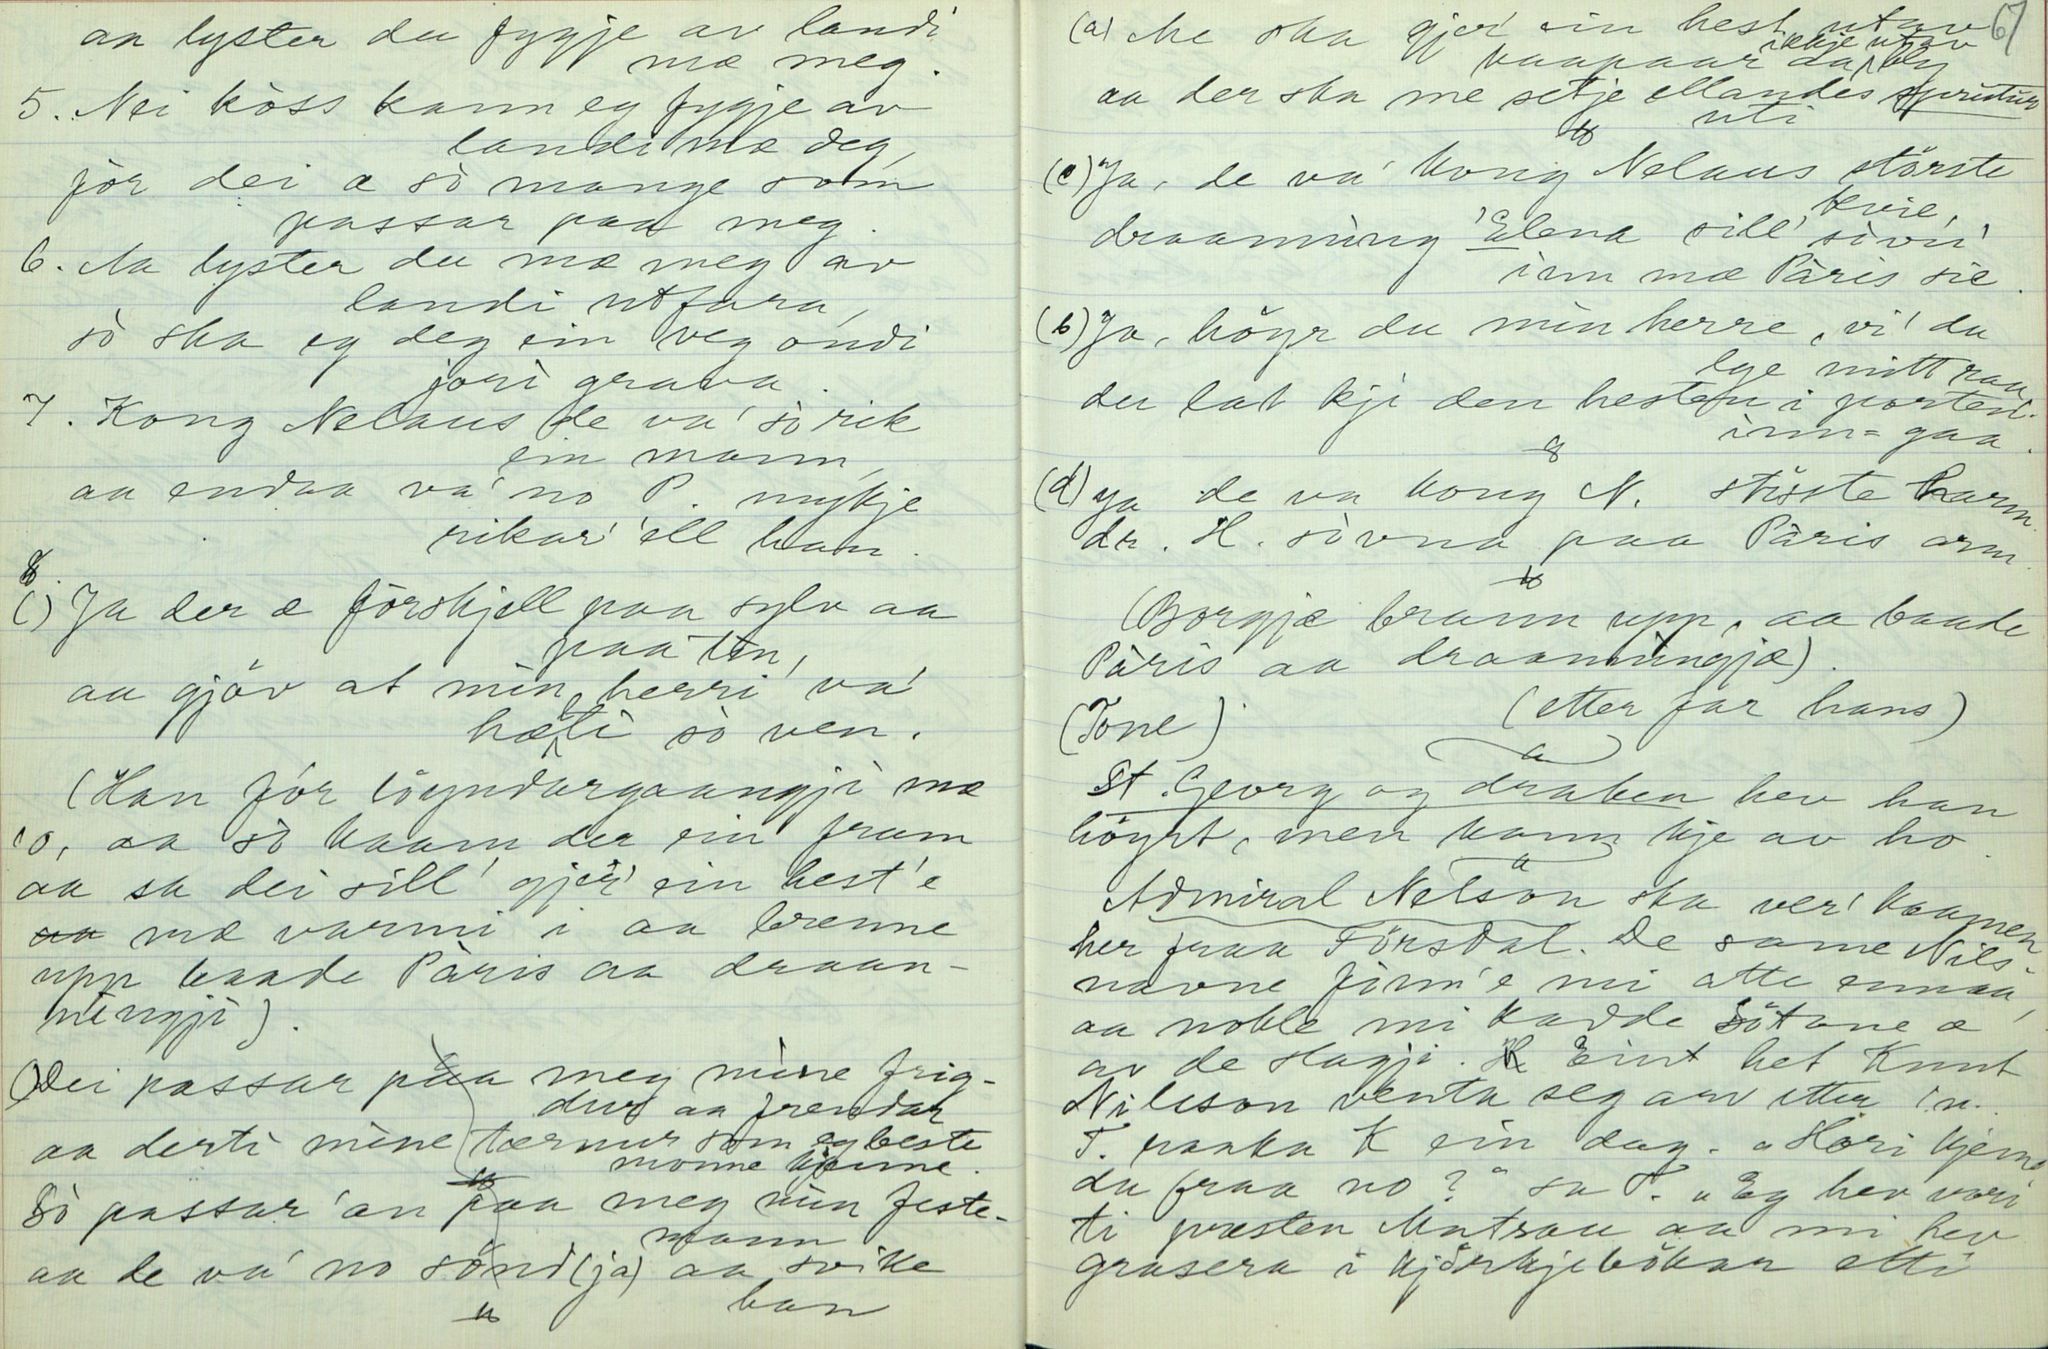 aa lyster du fygje av landi
mæ meg.
5. Nei kòss kann eg fygje av
landi mæ deg,
fòr dei æ sò mange som
passar paa meg.
6. Aa lyster du mæ meg av
landi utfara,
sò ska eg deg ein veg ondi
jori grava.
7. Kong Nelaus de va' sò rik
ein mann,
aa endaa va' no P. mykje
rikar' 'ell han.
8.
Ja der æ fòrskjell paa sylv aa
paa tin,
aa gjöv at min herri va'
hæti sò ven.
(Han fór löyndargaangji mæ
'o, aa sò kaam der ein fram
aa sa dei sill' gjer' ein hest 'e
mæ varmi i aa brenne
upp baade Pàris aa draan-
ningji).
Dei passar paa meg mine frig-
dur aa frendar
aa derti mine tærnur som eg beste
monne kjenne.
Sò passar 'an paa meg min feste-
mann
aa de va' no sönd (ja) aa svike
han
67
(a) Me ska gjer' ein hest utav
kaapaar da ikkje utav bly
aa der ska me setje ellandes
uti
(c) Ja, de va' kong Nelaus störste
kvie,
draanning Elena sill' sòvi'
inn mæ Pàris sie.
(b) Ja, höyr du min herre, vi' du
lye mitt raa
du lat kji den hesten i porten
inn-gaa.
(d) Ja de va kong N. stòste harm
dr. H. sòvna paa Pàris arm.
(Borgjæ brann upp, aa baade
Pàris aa draanningjæ).
(Tone) (etter far hans)
St. Georg og draken hev han
höyrt, men kann kje av ho.
Admiral Nelson ska ver' kaamen
her fraa Försdal. De same Nils-
navne finn 'e mi atte ennaa,
aa noble mi kadde Sötane æ
av de slagji. Eint het Knut
Nilsson venta seg arv etter 'n.
T. raaka K ein dag. "Hori kjem
du fraa no?" sa T. "Eg hev vori
ti præsten Matsau aa mi hev
grasera i kjörkjebökan etti